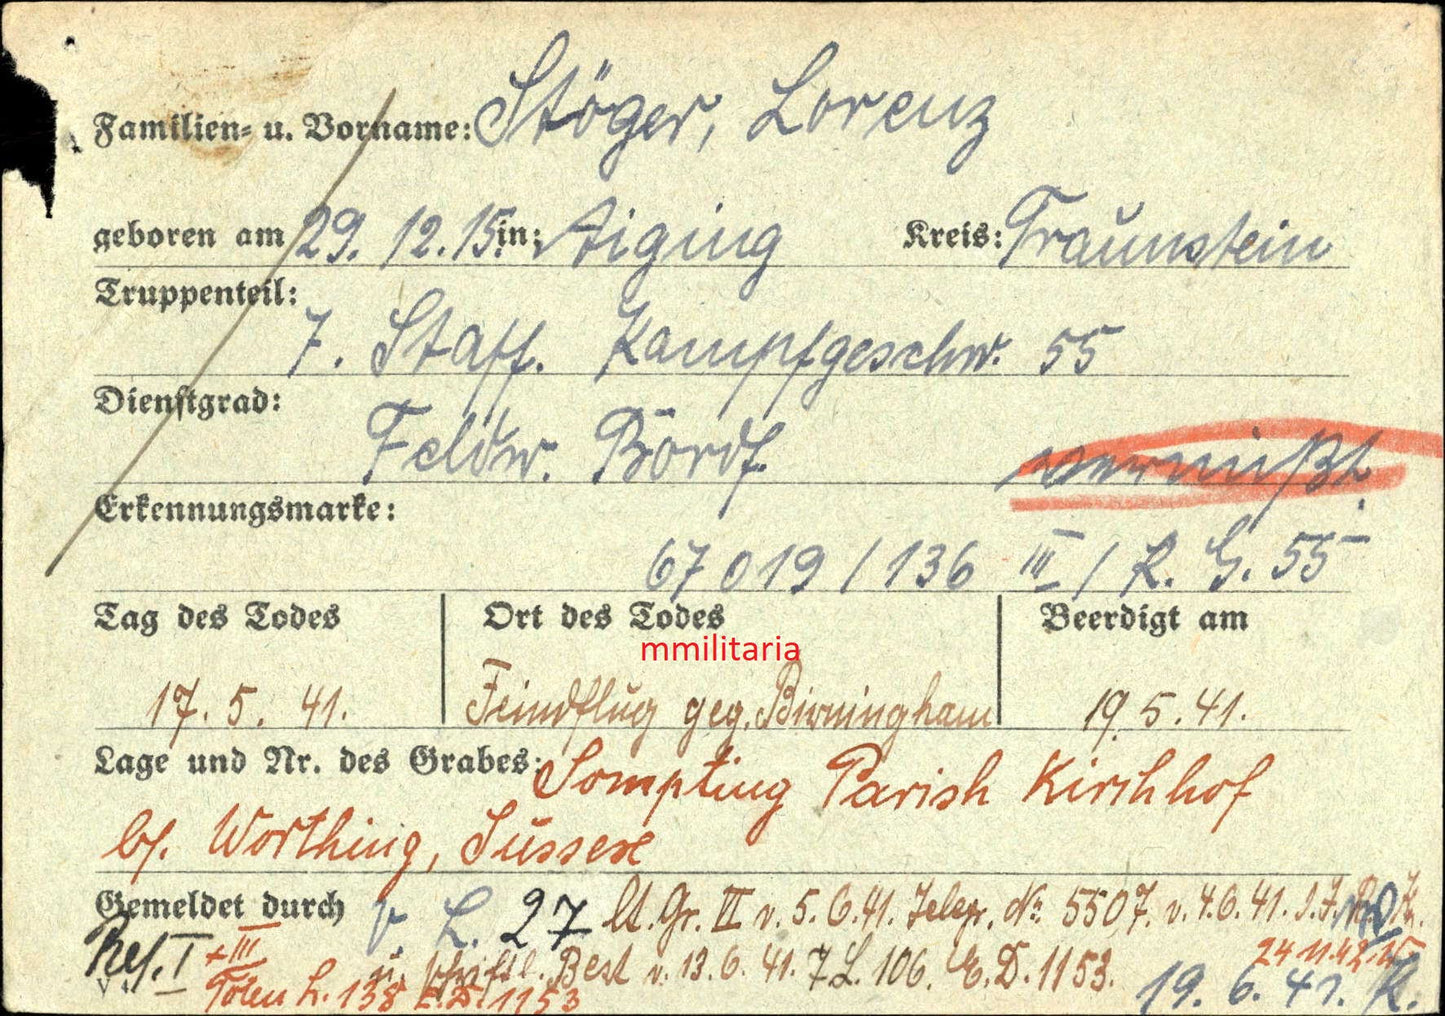 Familien- u. Vorname: Stöger, Lorenz
geboren am 29. 12. 15. in: Aiging Kreis: Traunstein
Truppenteil:
7. Staff. Kampfgeschw. 55
Dienstgrad:
Feldw. Bordf. vermißt.
Erkennungsmarke:
67019/136 III / K. G. 55
Tag des Todes Ort des Todes Beerdigt am
mmilitaria
17. 5. 41. Feindflug geg. Birmingham 19. 5. 41.
Lage und Nr. des Grabes: Sompting Parish Kirchhof
bf. Worthing, Sussex
Gemeldet durch L. 27 lt. Gr. III v. 5. 6. 41. Telegr. No: 5507. v. 4. 6. 41.
Ref. I + III u. schriftl. Best v. 13. 6. 41. 7 L. 106. E. D. 1153. 24 11.42
Toten L. 138 E.D. 1153 19. 6. 41. K.